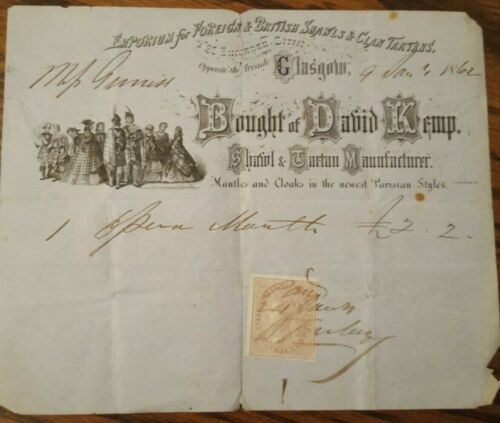 Emporium for Foreign & British Shawls & Clan Tartans,
37 Buchanan Street
Opposite the Arcade Glasgow, 9 Jany 1862
Bought of David Kemp,
Shawl & Tartan Manufacturer.
Mantles and Cloaks in the newest Parisian Styles.
1 Opera Mantle £2. 2